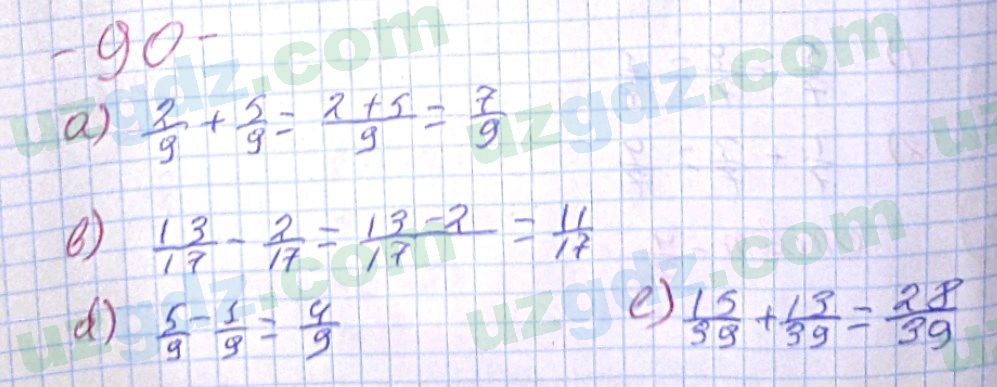 -90-
a) 2/9 + 5/9 = (2+5)/9 = 7/9
b) 13/17 - 2/17 = (13-2)/17 = 11/17
d) 5/9 - 1/9 = 4/9
e) 15/39 + 13/39 = 28/39
uzgdz.com
uzgdz.com
uzgdz.com
uzgdz.com